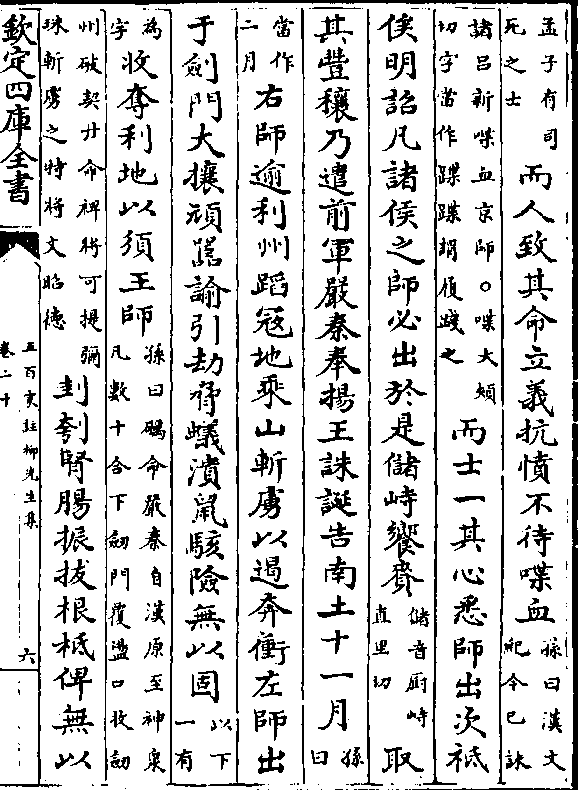 孟子有司死之士而人致其命立義抗憤不待喋血孫曰漢文紀今已誅
諸呂新喋血京師○喋大頰切字當作蹀蹀謂履踐之而士一其心悉師出次祗
俟明詔凡諸侯之師必出於是儲峙饗賚儲音廚峙直里切取
其豐穰乃遣前軍嚴秦奉揚王誅誕告南土十一月孫曰
當作二月右師逾利州蹈寇地乘山斬虜以遏奔衝左師出
于劍門大攘頑嚚諭引劫脅蟻潰鼠駭險無以固以下一有
為字收奪利地以須王師孫曰礪命嚴秦自漢原至神泉凡數十合下劒門覆盪口收劒
州破契廾命裨將可提彌珠斬虜之特將文昭德刲刳腎腸振拔根柢俾無以
欽定四庫全書
五百家註柳先生集
卷二十
六